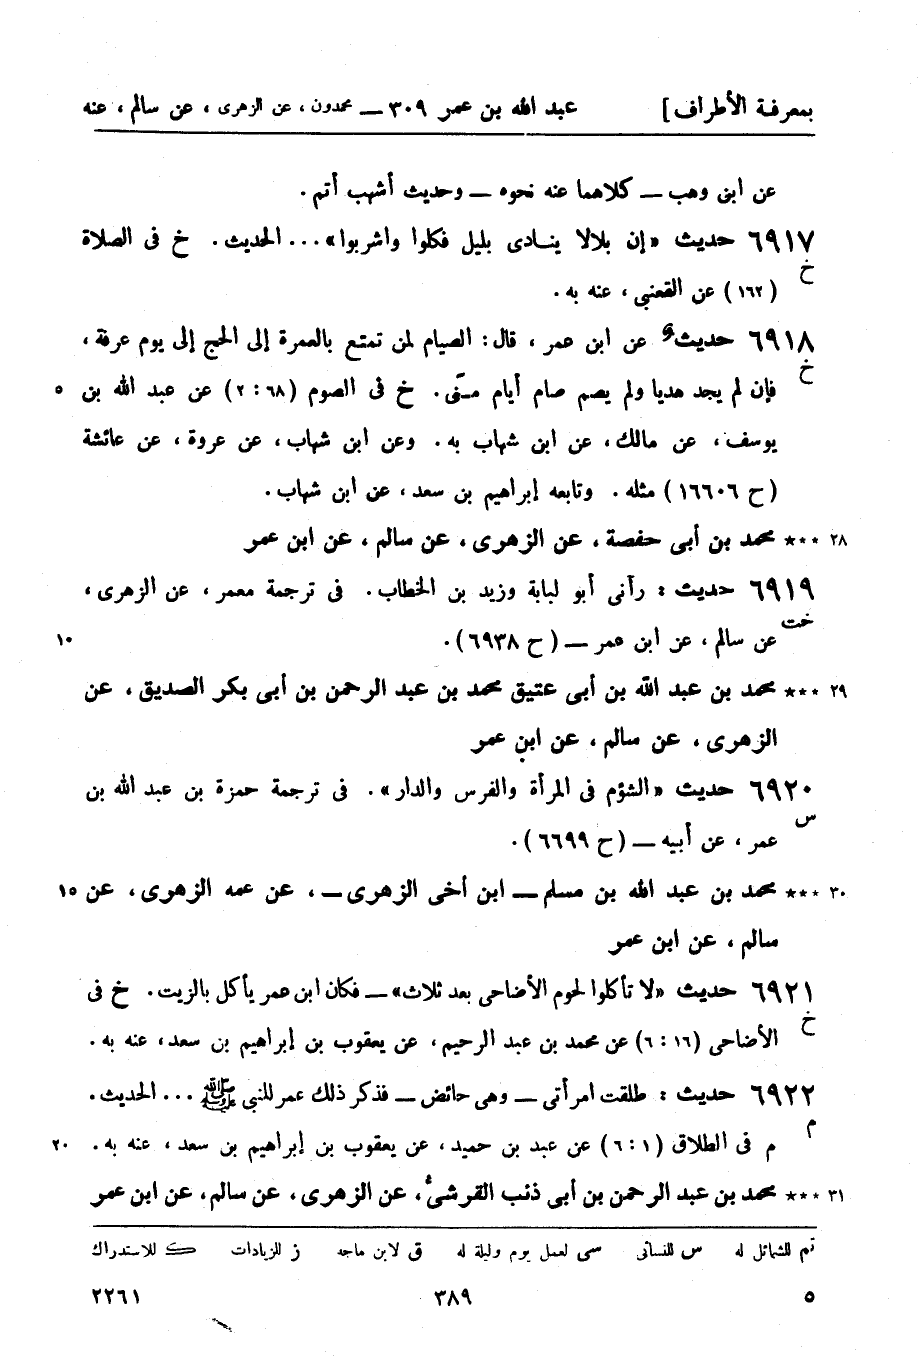 بمعرفة الأطراف] عبد الله بن عمر ٣٠٩ — محمدون، عن الزهرى، عن سالم، عنه
عن ابن وهب — كلاهما عنه نحوه — وحديث أشهب أتم.
٦٩١٧ حديث «إن بلالا ينادى بليل فكلوا واشربوا»... الحديث. خ فى الصلاة
خ
(١٦٢) عن القعنبي، عنه به.
٦٩١٨ حديث عن ابن عمر، قال: الصيام لمن تمتع بالعمرة إلى الحج إلى يوم عرفة،
خ
فإن لم يجد هديا ولم يصم صام أيام منّى. خ فى الصوم (٦٨: ٢) عن عبد الله بن ٥
يوسف، عن مالك، عن ابن شهاب به. وعن ابن شهاب، عن عروة، عن عائشة
(ح ١٦٦٠٦) مثله. وتابعه إبراهيم بن سعد، عن ابن شهاب.
٢٨ *** محمد بن أبى حفصة، عن الزهرى، عن سالم، عن ابن عمر
٦٩١٩ حديث: رآنى أبو لبابة وزيد بن الخطاب. فى ترجمة معمر، عن الزهرى،
خت
عن سالم، عن ابن عمر — (ح ٦٩٣٨). ١٠
٢٩ *** محمد بن عبد الله بن أبى عتيق محمد بن عبد الرحمن بن أبى بكر الصديق، عن
الزهرى، عن سالم، عن ابن عمر
٦٩٢٠ حديث «الشؤم فى المرأة والفرس والدار». فى ترجمة حمزة بن عبد الله بن
س
عمر، عن أبيه — (ح ٦٦٩٩).
٣٠ *** محمد بن عبد الله بن مسلم — ابن أخى الزهرى —، عن عمه الزهرى، عن ١٥
سالم، عن ابن عمر
٦٩٢١ حديث «لا تأكلوا لحوم الأضاحى بعد ثلاث» — فكان ابن عمر يأكل بالزيت. خ فى
خ
الأضاحى (١٦: ٦) عن محمد بن عبد الرحيم، عن يعقوب بن إبراهيم بن سعد، عنه به.
٦٩٢٢ حديث: طلقت امرأتى — وهى حائض — فذكر ذلك عمر للنبى ﷺ ... الحديث.
م
م فى الطلاق (١: ٦) عن عبد بن حميد، عن يعقوب بن إبراهيم بن سعد، عنه به. ٢٠
٣١ *** محمد بن عبد الرحمن بن أبى ذئب القرشى، عن الزهرى، عن سالم، عن ابن عمر
تم للشمائل له س للنسائى سى لعمل يوم وليلة له ق لابن ماجه ز للزيادات ك للاستدراك
٥ ٣٨٩ ٢٢٦١